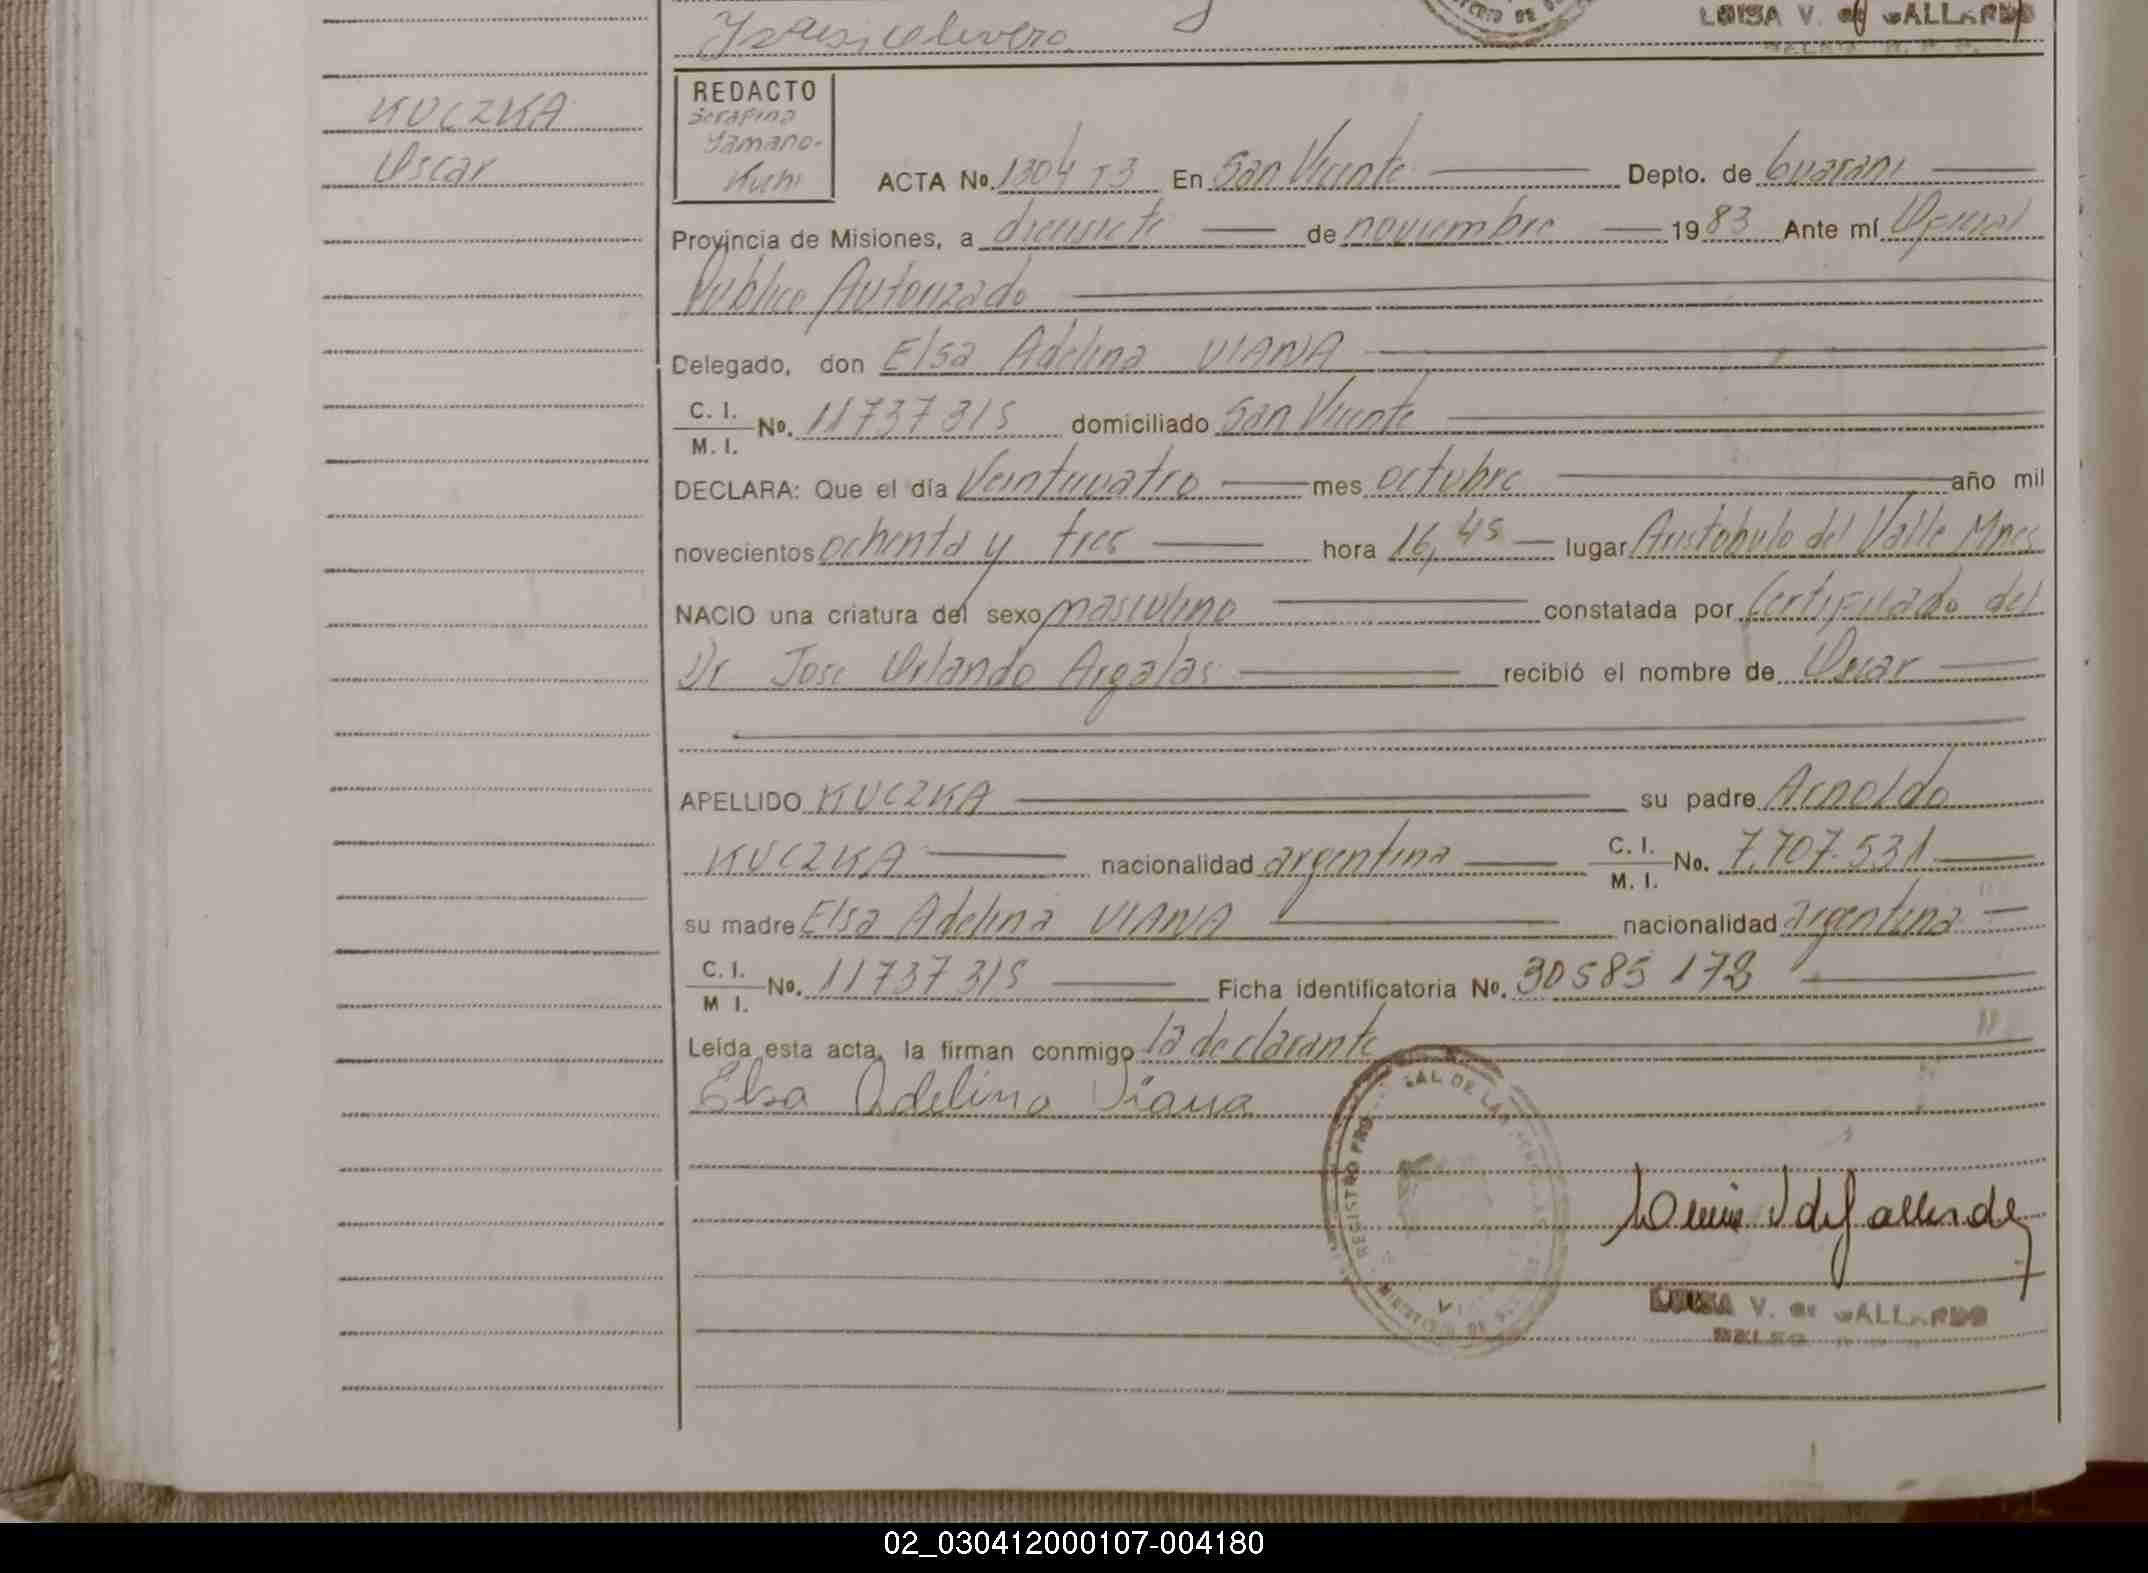 LUISA V. de GALLARDO
KUCZKA
Oscar
REDACTO
Serafina
Yamano-
Kuchi
ACTA No. 1304 T3 En San Vicente Depto. de Guarani
Provincia de Misiones, a diecisiete de noviembre 1983 Ante mí Oficial
Publico Autorizado
Delegado, don Elsa Adelina VIANA
C. I.
M. I. No. 11737315 domiciliado San Vicente
DECLARA: Que el día Veinticuatro mes octubre año mil
novecientos ochenta y tres hora 16,45 lugar Aristobulo del Valle Mnes
NACIO una criatura del sexo masculino constatada por Certificado del
Dr Jose Orlando Argalas recibió el nombre de Oscar
APELLIDO KUCZKA su padre Arnoldo
KUCZKA nacionalidad argentina C. I. M. I. No. 7.707.531
su madre Elsa Adelina VIANA nacionalidad argentina
C. I.
M I. No. 11737315 Ficha identificatoria No. 30585172
Leída esta acta, la firman conmigo la declarante
Elsa Adelina Viana
REGISTRO PRO AL DE LAS
LUISA V. de GALLARDO
02_030412000107-004180